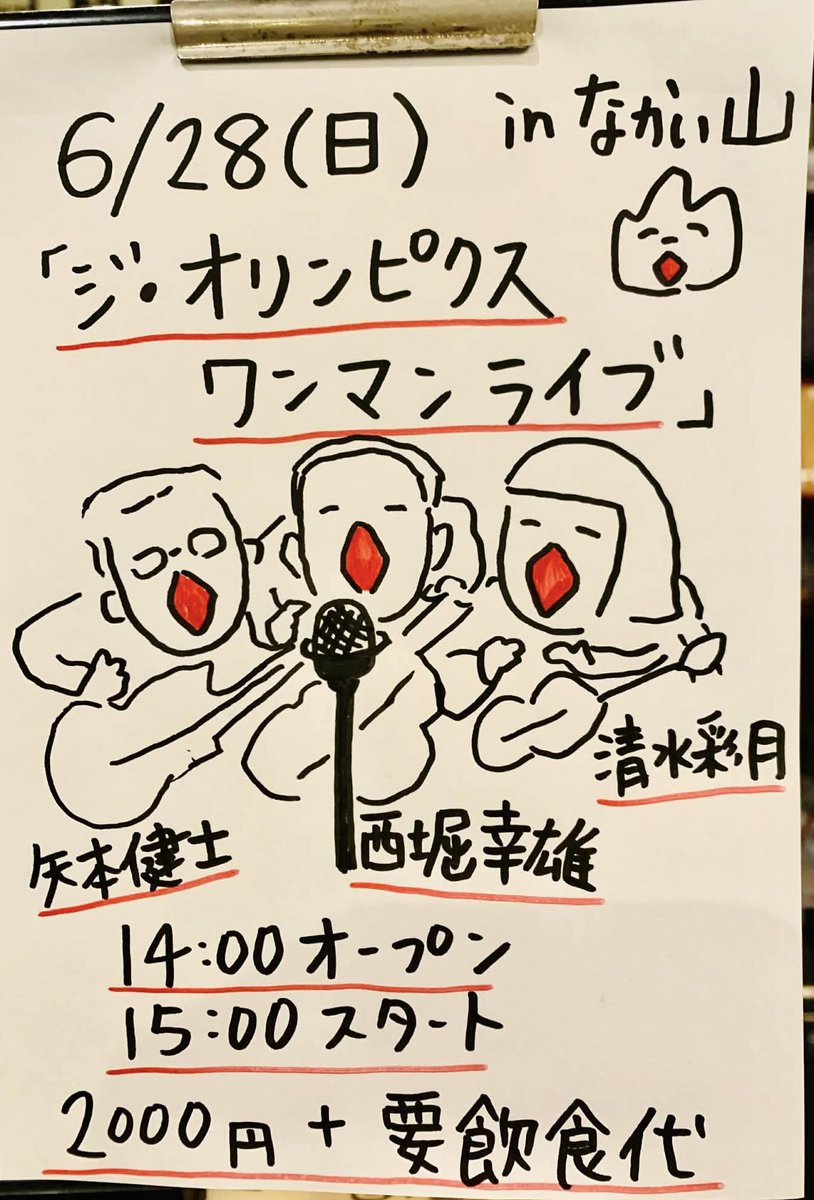 6/28(日) in なかい山
「ジ・オリンピクス
ワンマンライブ」
清水彩月
矢本健士
西堀幸雄
14:00オープン
15:00スタート
2000円+要飲食代